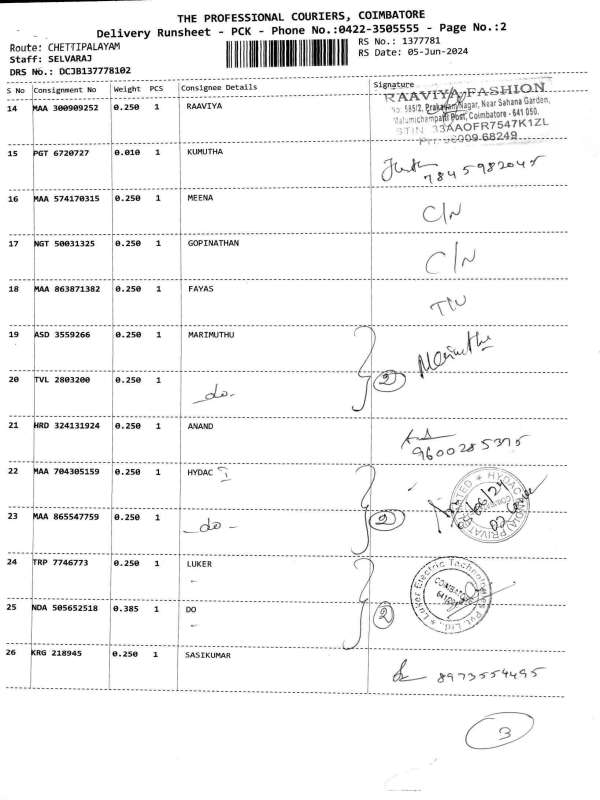 THE PROFESSIONAL COURIERS, COIMBATORE
Delivery Runsheet - PCK - Phone No.:0422-3505555 - Page No.:2
Route: CHETTIPALAYAM RS No.: 1377781
Staff: SELVARAJ RS Date: 05-Jun-2024
DRS No.: DCJB137778102
S No Consignment No Weight PCS Consignee Details Signature
14 MAA 300909252 0.250 1 RAAVIYA
RAAVIYA FASHION
No. 585/2, Prakayam Nagar, Near Sahana Garden,
Malumichampatti Post, Coimbatore - 641 050.
GSTIN: 33AAOFR7547K1ZL
68249
15 PGT 6720727 0.010 1 KUMUTHA
7845982045
16 MAA 574170315 0.250 1 MEENA C/N
17 NGT 50031325 0.250 1 GOPINATHAN C/N
18 MAA 863871382 0.250 1 FAYAS
19 ASD 3559266 0.250 1 MARIMUTHU Marimuthu
2
20 TVL 2803200 0.250 1 do-
21 HRD 324131924 0.250 1 ANAND
9600285395
22 MAA 704305159 0.250 1 HYDAC I
HYDAC (INDIA) PRIVATE LIMITED
2
23 MAA 865547759 0.250 1 -do-
24 TRP 7746773 0.250 1 LUKER
Luker Electric Technologies Pvt. Ltd.
COIMBATORE
2
25 NDA 505652518 0.385 1 DO
26 KRG 218945 0.250 1 SASIKUMAR
8973554495
3